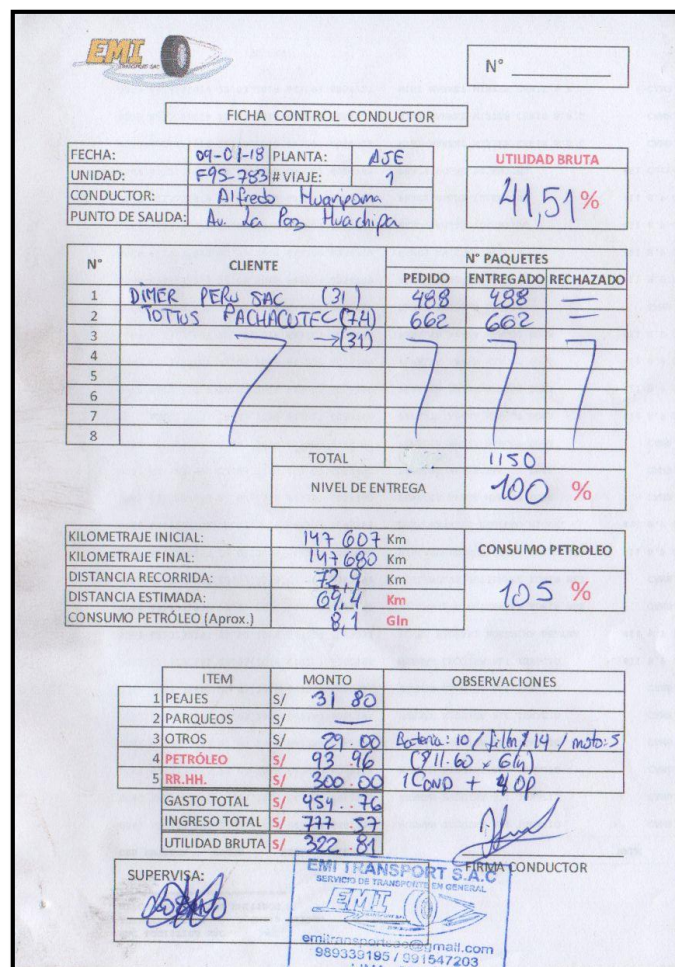 EMI
TRANSPORT SAC
N° ____________
FICHA CONTROL CONDUCTOR
FECHA: 09-01-18 PLANTA: AJE
UNIDAD: F9S-783 # VIAJE: 1
CONDUCTOR: Alfredo Huaripoma
PUNTO DE SALIDA: Av. La Paz Huachipa
UTILIDAD BRUTA
41,51 %
N° CLIENTE N° PAQUETES
PEDIDO ENTREGADO RECHAZADO
1 DIMER PERU SAC (31) 488 488 —
2 TOTTUS PACHACUTEC (74) 662 662 —
3 →(31)
4
5
6
7
8
TOTAL 1150
NIVEL DE ENTREGA 100 %
KILOMETRAJE INICIAL: 147 607 Km
KILOMETRAJE FINAL: 147 680 Km
DISTANCIA RECORRIDA: 72,9 Km
DISTANCIA ESTIMADA: 69,4 Km
CONSUMO PETRÓLEO (Aprox.) 8,1 Gln
CONSUMO PETROLEO
105 %
ITEM MONTO OBSERVACIONES
1 PEAJES S/ 31 80
2 PARQUEOS S/ —
3 OTROS S/ 29.00 / film: 14 / moto: 5
4 PETRÓLEO S/ 93.96 (\$11.60 x Gln)
5 RR.HH. S/ 300.00 1 COND + 4 OP
GASTO TOTAL S/ 454.76
INGRESO TOTAL S/ 777.57
UTILIDAD BRUTA S/ 322.81
SUPERVISA:
FIRMA CONDUCTOR
EMI TRANSPORT S.A.C
SERVICIO DE TRANSPORTE EN GENERAL
EMI
989339195 / 991547203